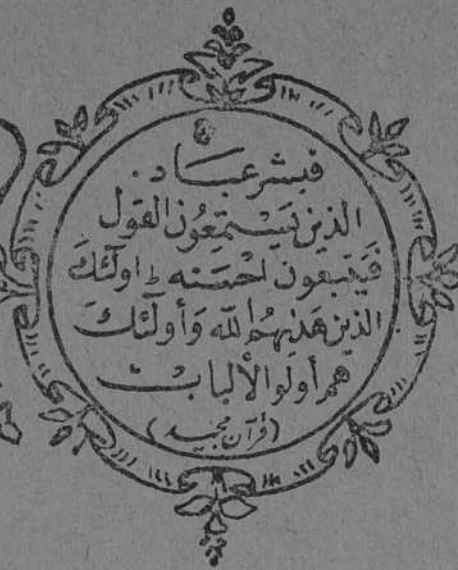 فبشر عباد.
الذين يَسْتمِعُون القول
فَيَتبعون احْسَنه ط اولٰئكَ
الذين هَدٰىهُمُ اللّه وَأولٰئكَ
هم أولو الألباب
(قرآن مجید)